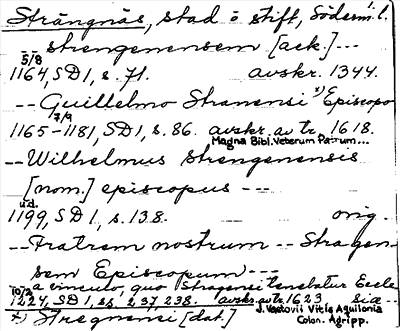 Strängnäs, stad o stift, Söderm. l.
strengenensem [ack.] ---
5/8
1164, SD 1, s. 71. avskr. 1344.
-- Guillelmo Stranensi x) Episcopo
7/9
1165-1181, SD 1, s. 86. avskr. av tr. 1618.
Magna Bibl. Veterum Patrum...
-- Wilhelmus strengenensis
[nom.] episcopus ---
u.d.
1199, SD 1, s. 138. orig.
-- Fratrem nostrum -- Stragen-
sem Episcopum ---
a vinculo, quo Stragensi tenebatur Eccle
1224, SD 1, ss. 237, 238. avskr. av tr. 1623 siæ --
J. Vastovii Vitis Aquilonia
x) Stregnensi [dat.] Colon. Agripp.